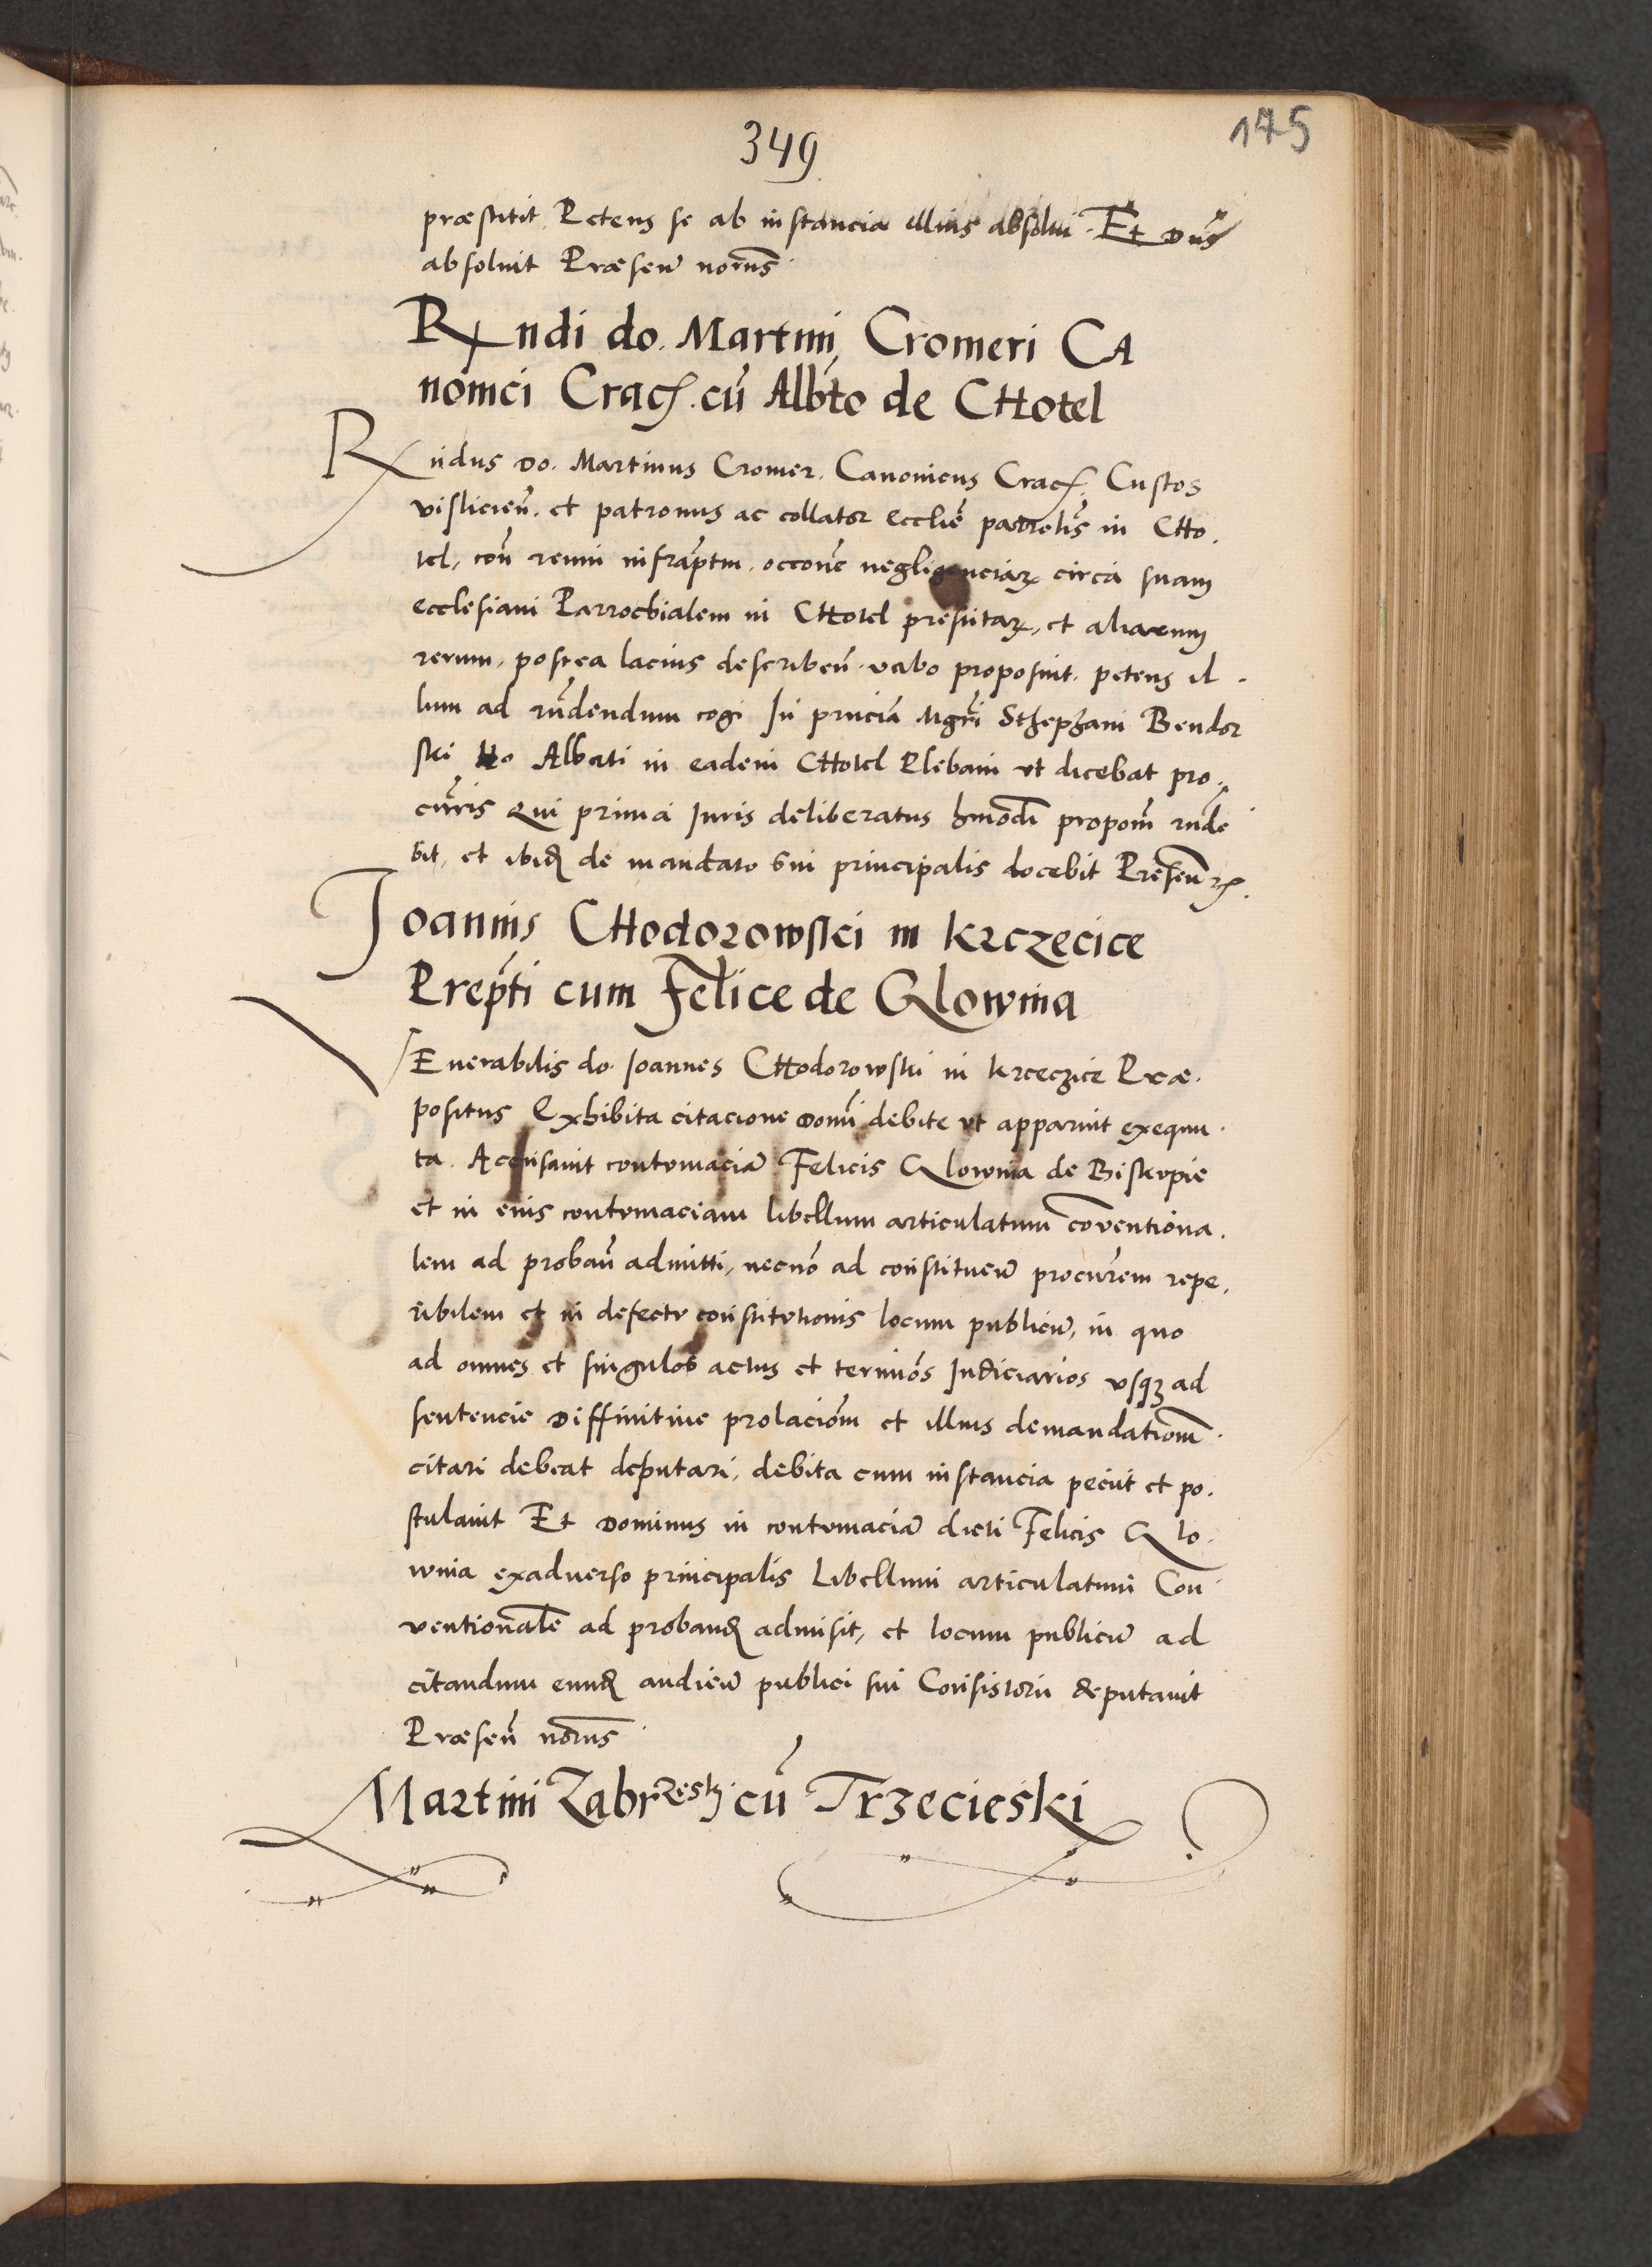 349
175
præstitit Petens se ab instancia illius absolui. Et Dn̄s
absoluit Præsen̄ nōrus
Rndi do. Martini Cromeri CA
nonici Crac̄. cū Alb̄to de CHotel
Rndus Do. Martinus Cromer. Canonicus Crac̄. Custos
visliciēn. et patronus ac collator ecclīe pārōlīs in CHo.
tel, con̄ reum infrāptm. occōne negligenciarꝝ circa suam
ecclesiam Parrochialem in CHotel prestitarꝝ, et aliarum
rerum, postea lacius describen̄. verbo proposuit. petens il.
lum ad rn̄dendum cogi In pn̄ciā Mgrī Sthephani Bendor
ski Albati in eadem CHotel Plebani vt dicebat pro.
cūris Qui prima Iuris deliberatus hmōdi propom̄ rnde
bit, et ibidꝫ de mandato sui principalis docebit Presen̄
Ioannis CHodorowski in Krczecice
Prepti cum Felice de Glownia
VEnerabilis do. Ioannes CHodorowski in Krczeczice Præ.
positus Exhibita citacione Domī debite vt apparuit exequu.
ta. Accusauit contumaciā Felicis Glownia de Biskupie
et in eius contumaciam libellum articulatum cōventiona.
lem ad proban̄ admitti, necnō ad constituen̄ procūrem repe.
ribilem et in defectu constitutionis locum publicū, in quo
ad omnes et singulos actus et terminōs Iudiciarios vsqꝫ ad
sentencie Diffinitiue prolaciōm et illius demandatiōm.
citari debeat deputari, debita cum instancia peciit et po.
stulauit Et Dominus in contumaciā dicti Felicis Glo.
wnia exaduerso principalis Libellum articulatum Con
ventionalē ad probandꝫ admisit, et locum publicū ad
citandum eundꝫ audien̄ publici sui Consistorii deputauit
Præsen̄ nōrus
Martini Zabrzeskj cū Trzecieski